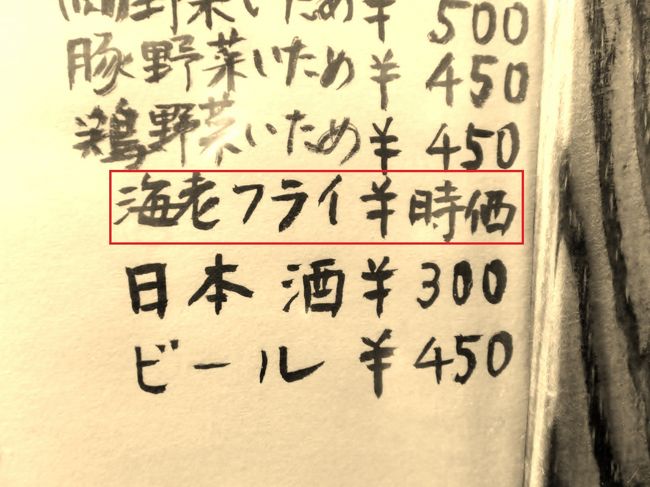 野菜いため ¥ 500
豚野菜いため ¥ 450
鶏野菜いため ¥ 450
海老フライ ¥ 時価
日本酒 ¥ 300
ビール ¥ 450